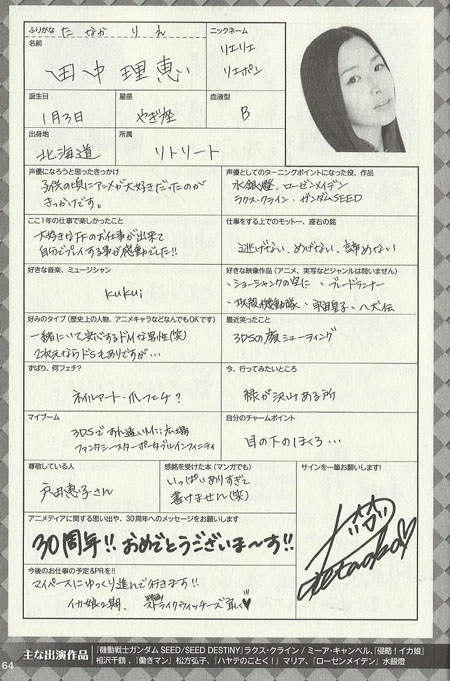 ふりがな
たなか りえ
ニックネーム
名前
田中 理恵
リエリエ
リエポン
誕生日
星座
血液型
1月3日
やぎ座
B
出身地
所属
北海道
リトリート
声優になろうと思ったきっかけ
子供の頃にアニメが大好きだったのが
きっかけです。
声優としてのターニングポイントになった役、作品
水銀燈、ローゼンメイデン
ラクス・クライン・ガンダムSEED
ここ1年の仕事で楽しかったこと
大好きなFFのお仕事が出来て
自分でプレイする事が感動でした!!
仕事をする上でのモットー、座右の銘
逃げない、めげない、諦めない
好きな音楽、ミュージシャン
kukui
好きな映像作品(アニメ、実写などジャンルは問いません)
・ショーシャンクの空に ・ブレードランナー
・攻殻機動隊 ・ 八犬伝
好みのタイプ(歴史上の人物、アニメキャラなどなんでもOKです)
一緒にいて楽しいドMな男性(笑)
2次元ならドSもありですが…
最近笑ったこと
3DSの顔シューティング
ずばり、何フェチ?
ネイルアート・爪フェチ?
今、行ってみたいところ
緑が沢山ある所
マイブーム
3DSですれ違いMii広場
ファンタシースターポータブルインフィニティ
自分のチャームポイント
目の下のほくろ…
尊敬している人
戸田恵子さん
感銘を受けた本(マンガでも)
いっぱいありすぎて
書けません(笑)
サインを一筆お願いします!
アニメディアに関する思い出や、30周年へのメッセージをお願いします
30周年!!おめでとうございま〜す!!
今後のお仕事の予定&PRを!!
マイペースにゆっくり進んで行きます!!
イカ娘2期、 ストライクウィッチーズ
主な出演作品
『機動戦士ガンダムSEED/SEED DESTINY』ラクス・クライン/ミーア・キャンベル、『侵略!イカ娘』
相沢千鶴、『働きマン』松方弘子、『ハヤテのごとく!』マリア、『ローゼンメイデン』水銀燈
64